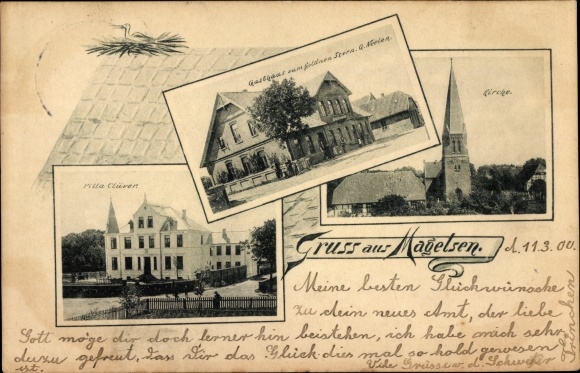 Gasthaus zum goldnen Stern. G. Nollen.
Kirche.
Villa Clüver.
Gruss aus Magelsen.
d. 11.3.00.
Meine besten Glückwünsche
zu dein neues Amt, der liebe
Gott möge dir doch ferner hin beistehen, ich habe mich sehr
dazu gefreut, dass Dir das Glück dies mal so hold gewesen
ist.
Viele Grüsse v. d. Schwester